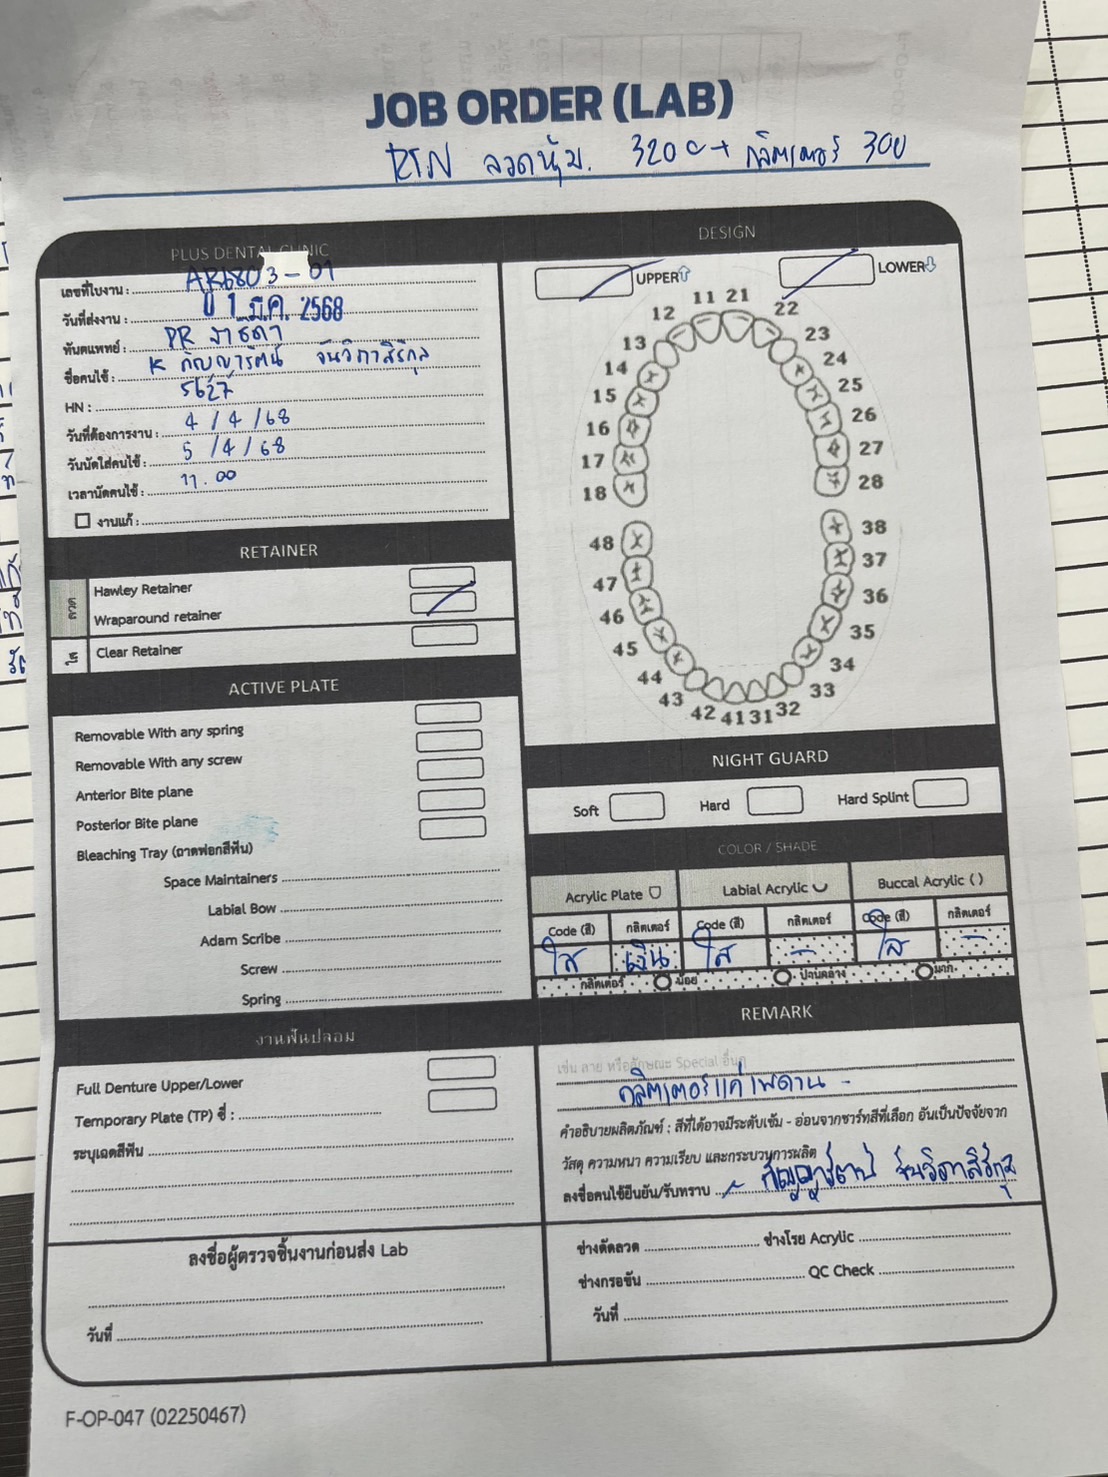 JOB ORDER (LAB)
RTN ลวดหุ้ม. 3200 + กลิตเตอร์ 300
PLUS DENTAL CLINIC
เลขที่ใบงาน : AR6803-01
วันที่ส่งงาน : 1 มี.ค. 2568
ทันตแพทย์ : DR
ชื่อคนไข้ : K กัญญารัตน์ จันวิภาสิริกุล
HN : 5627
วันที่ต้องการงาน : 4 / 4 / 68
วันนัดใส่คนไข้ : 5 / 4 / 68
เวลานัดคนไข้ : 11.00
งานแก้ :
DESIGN
UPPER
LOWER
11 21
12 22
13 23
14 24
15 25
16 26
17 27
18 28
48 38
47 37
46 36
45 35
44 34
43 33
42 41 31 32
RETAINER
ลวด
Hawley Retainer
Wraparound retainer
ใส
Clear Retainer
ACTIVE PLATE
Removable With any spring
Removable With any screw
Anterior Bite plane
Posterior Bite plane
Bleaching Tray (ถาดฟอกสีฟัน)
Space Maintainers
Labial Bow
Adam Scribe
Screw
Spring
NIGHT GUARD
Soft Hard Hard Splint
COLOR / SHADE
Acrylic Plate Labial Acrylic Buccal Acrylic ( )
Code (สี) กลิตเตอร์ Code (สี) กลิตเตอร์ Code (สี) กลิตเตอร์
ใส เงิน ใส - ใส -
กลิตเตอร์ น้อย ปานกลาง มาก
งานฟันปลอม
Full Denture Upper/Lower
Temporary Plate (TP) ซี่ :
ระบุเฉดสีฟัน
REMARK
เช่น ลาย หรือลักษณะ Special อื่นๆ
กลิตเตอร์แค่เพดาน -
คำอธิบายผลิตภัณฑ์ : สีที่ได้อาจมีระดับเข้ม - อ่อนจากชาร์ทสีที่เลือก อันเป็นปัจจัยจาก
วัสดุ ความหนา ความเรียบ และกระบวนการผลิต
ลงชื่อคนไข้ยืนยัน/รับทราบ กัญญารัตน์ จันวิภาสิริกุล
ลงชื่อผู้ตรวจชิ้นงานก่อนส่ง Lab
วันที่
ช่างดัดลวด ช่างโรย Acrylic
ช่างกรอขัน QC Check
วันที่
F-OP-047 (02250467)